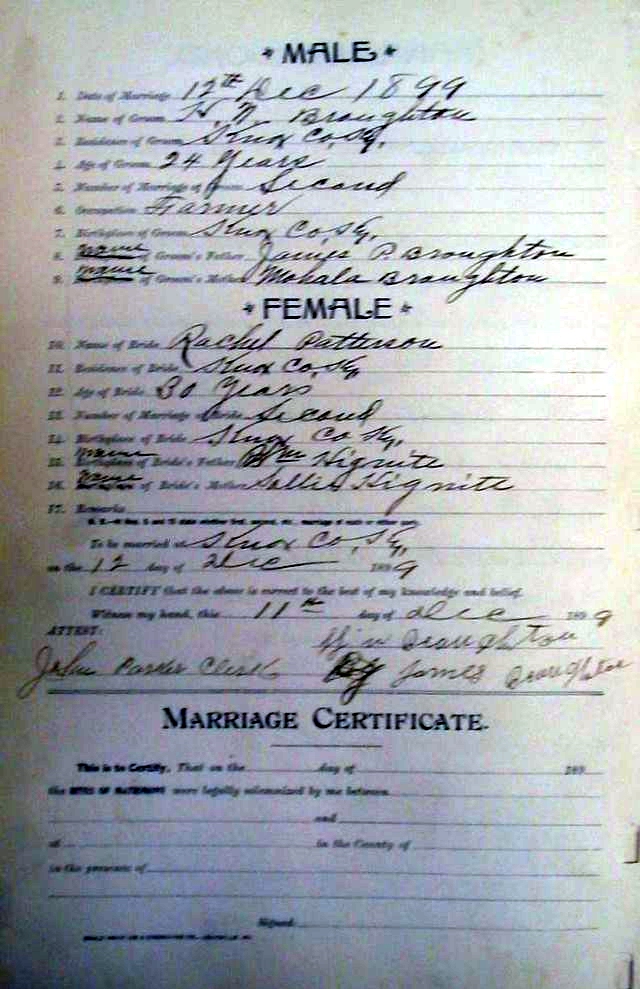 * MALE *
1. Date of Marriage 12th Dec 1899
2. Name of Groom H. N. Broughton
3. Residence of Groom Knox Co, Ky.
4. Age of Groom 24 Years
5. Number of Marriage of Groom Second
6. Occupation Farmer
7. Birthplace of Groom Knox Co, Ky.
8. name of Groom's Father James P. Broughton
9. name of Groom's Mother Mohala Broughton
* FEMALE *
10. Name of Bride Rachel Patterson
11. Residence of Bride Knox Co, Ky.
12. Age of Bride 30 Years
13. Number of Marriage of Bride Second
14. Birthplace of Bride Knox Co Ky.
15. name of Bride's Father Wm Hignite
16. name of Bride's Mother Sallie Hignite
17. Remarks
To be married at Knox Co, Ky,
on the 12 day of Dec 1899
I CERTIFY that the above is correct to the best of my knowledge and belief.
Witness my hand, this 11th day of Dec 1899
ATTEST: Broughton
John Parker Clerk By James Broughton
MARRIAGE CERTIFICATE.
This is to Certify, That on the day of 189
the RITES OF MATRIMONY were legally solemnized by me between
and
of in the County of
in the presence of
Signed